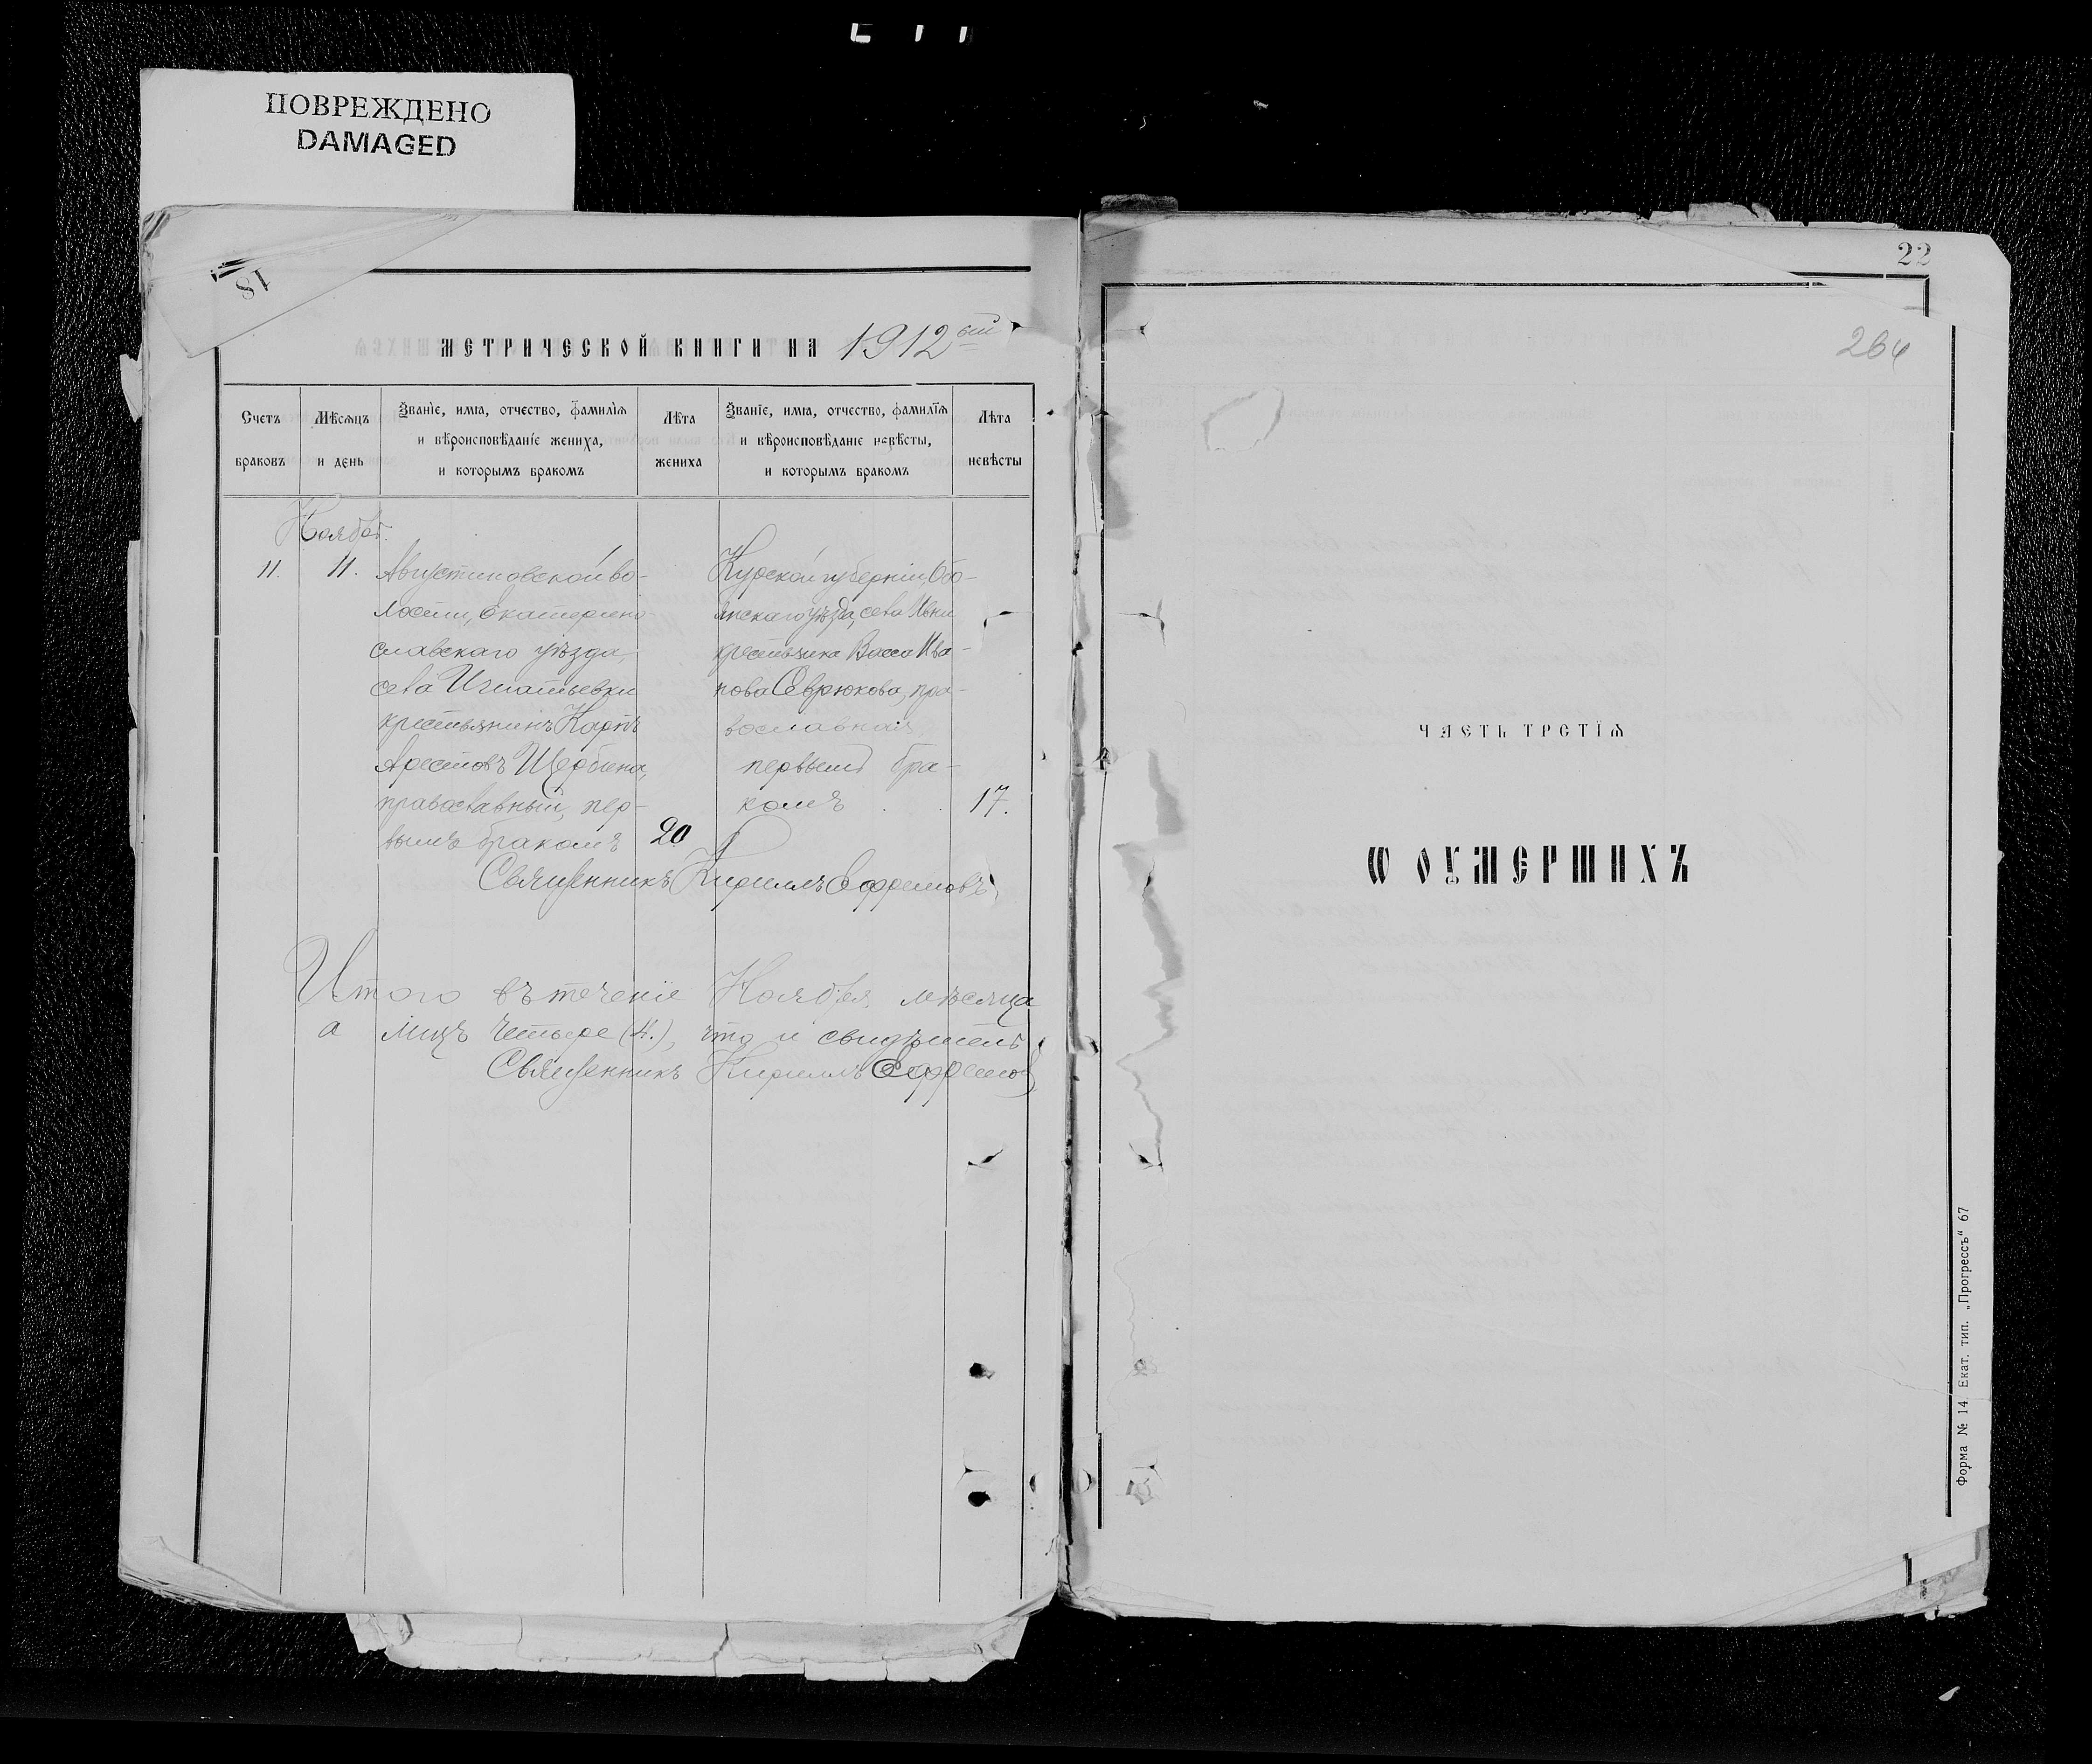 ПОВРЕЖДЕНО
DAMAGED
81
МЕТРИЧЕСКОЙ КНИГИ НА 1912 ый
Счетъ браковъ
Мѣсяцъ и день
Званіе, имя, отчество, фамилія и вѣроисповѣданіе жениха, и которымъ бракомъ
Лѣта жениха
Званіе, имя, отчество, фамилія и вѣроисповѣданіе невѣсты, и которымъ бракомъ
Лѣта невѣсты
Ноябрь.
11.
11.
Августиновской во-
лости, Екатерино-
славскаго уѣзда,
села Игнатьевки
крестьянинъ Карпъ
Арестовъ Щербина,
православный, пер-
вымъ бракомъ
20
Курской губерніи, Обо-
янскаго уѣзда, села Ивни
крестьянка Васса Ива-
нова Севрюкова, пра-
вославная,
первымъ бра-
комъ
17.
Священникъ Кириллъ Ефремовъ
Итого въ теченіе Ноября мѣсяца
а лицъ четыре (4.), что и свидѣтель
Священникъ Кириллъ Ефремов
22
264
ЧАСТЬ ТРЕТІѦ
Ѡ ОУМЕРШИХЪ
Форма № 14. Екат. тип. „Прогрессъ“ 67